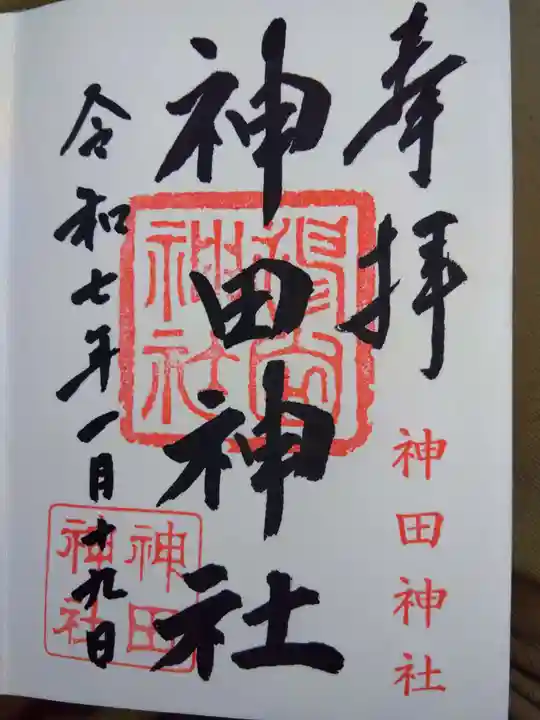 奉拝
神田神社
神田神社
令和七年一月十九日
神田
神社